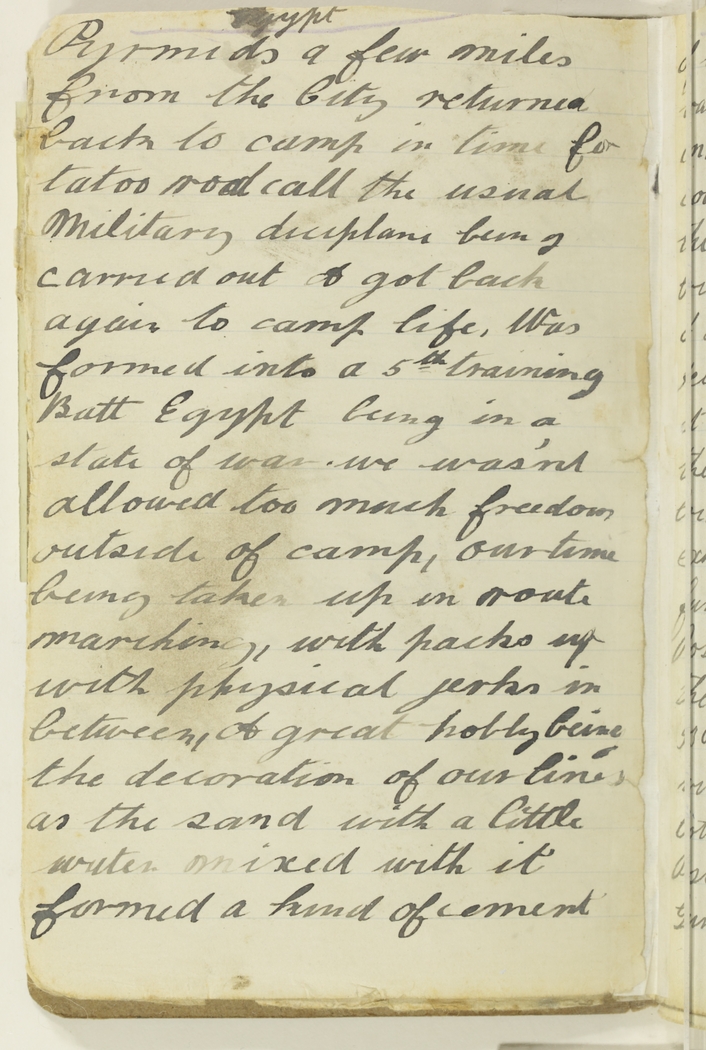 Egypt
Pyrmids a few miles
from the City returned
back to camp in time for
tatoo roll call the usual
Military diciplane being
carried out & got back
again to camp life, Was
formed into a 5th training
Batt Egypt being in a
state of war we was'nt
allowed too much freedom
outside of camp, our time
being taken up in route
marching, with packs up
with physical jerks in
between, A great hobby being
the decoration of our lines
as the sand with a little
water mixed with it
formed a kind of cement